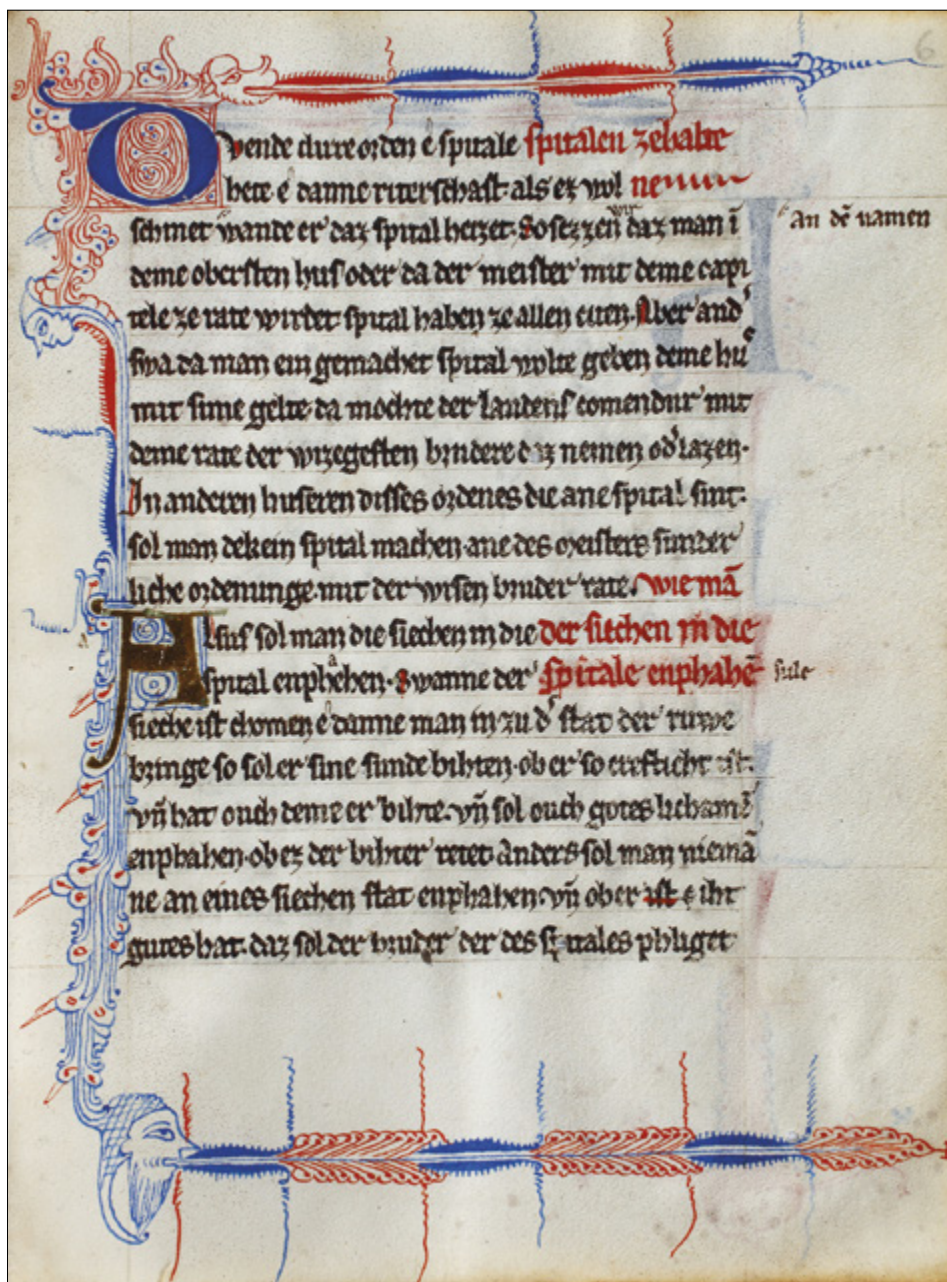 6
Wende dirre orden e spitale spitalen zehabē
hete e danne riterschaft als ez wol nemm
schinet wande er daz spital heizet. So sezzen wir daz man ī
an dē namen
deme obersten hus oder da der meister mit deme capi
tele ze rate wirdet spital haben ze allen citen. Aber and'
swa da man ein gemachet spital wolte geben deme hus
mit sime gelte da mochte der landens comendur mit
deme rate der wizegesten brudere daz nemen od' lazen.
In anderen huseren disses ordenes die ane spital sint.
sol man dekein spital machen. ane des meisters sunder
liche ordenunge. mit der wisen bruder rate. wie mā
Alsus sol man die siechen in die der siechen in die
spital enphehen. Swanne der spitale enphahē
sule
sieche ist chomen e danne man in zu d' stat der ruwe
bringe so sol er sine sunde bihten. ob er so creftich ist.
vn̄ hat ouch deme er bihte. vn̄ sol ouch gotes lichamē
enphahen. ob ez der bihter retet. Anders sol man niemā
ne an eines siechen stat enphahen. vn̄ ob er ist iht
gutes hat. daz sol der bruder der des spitales phliget